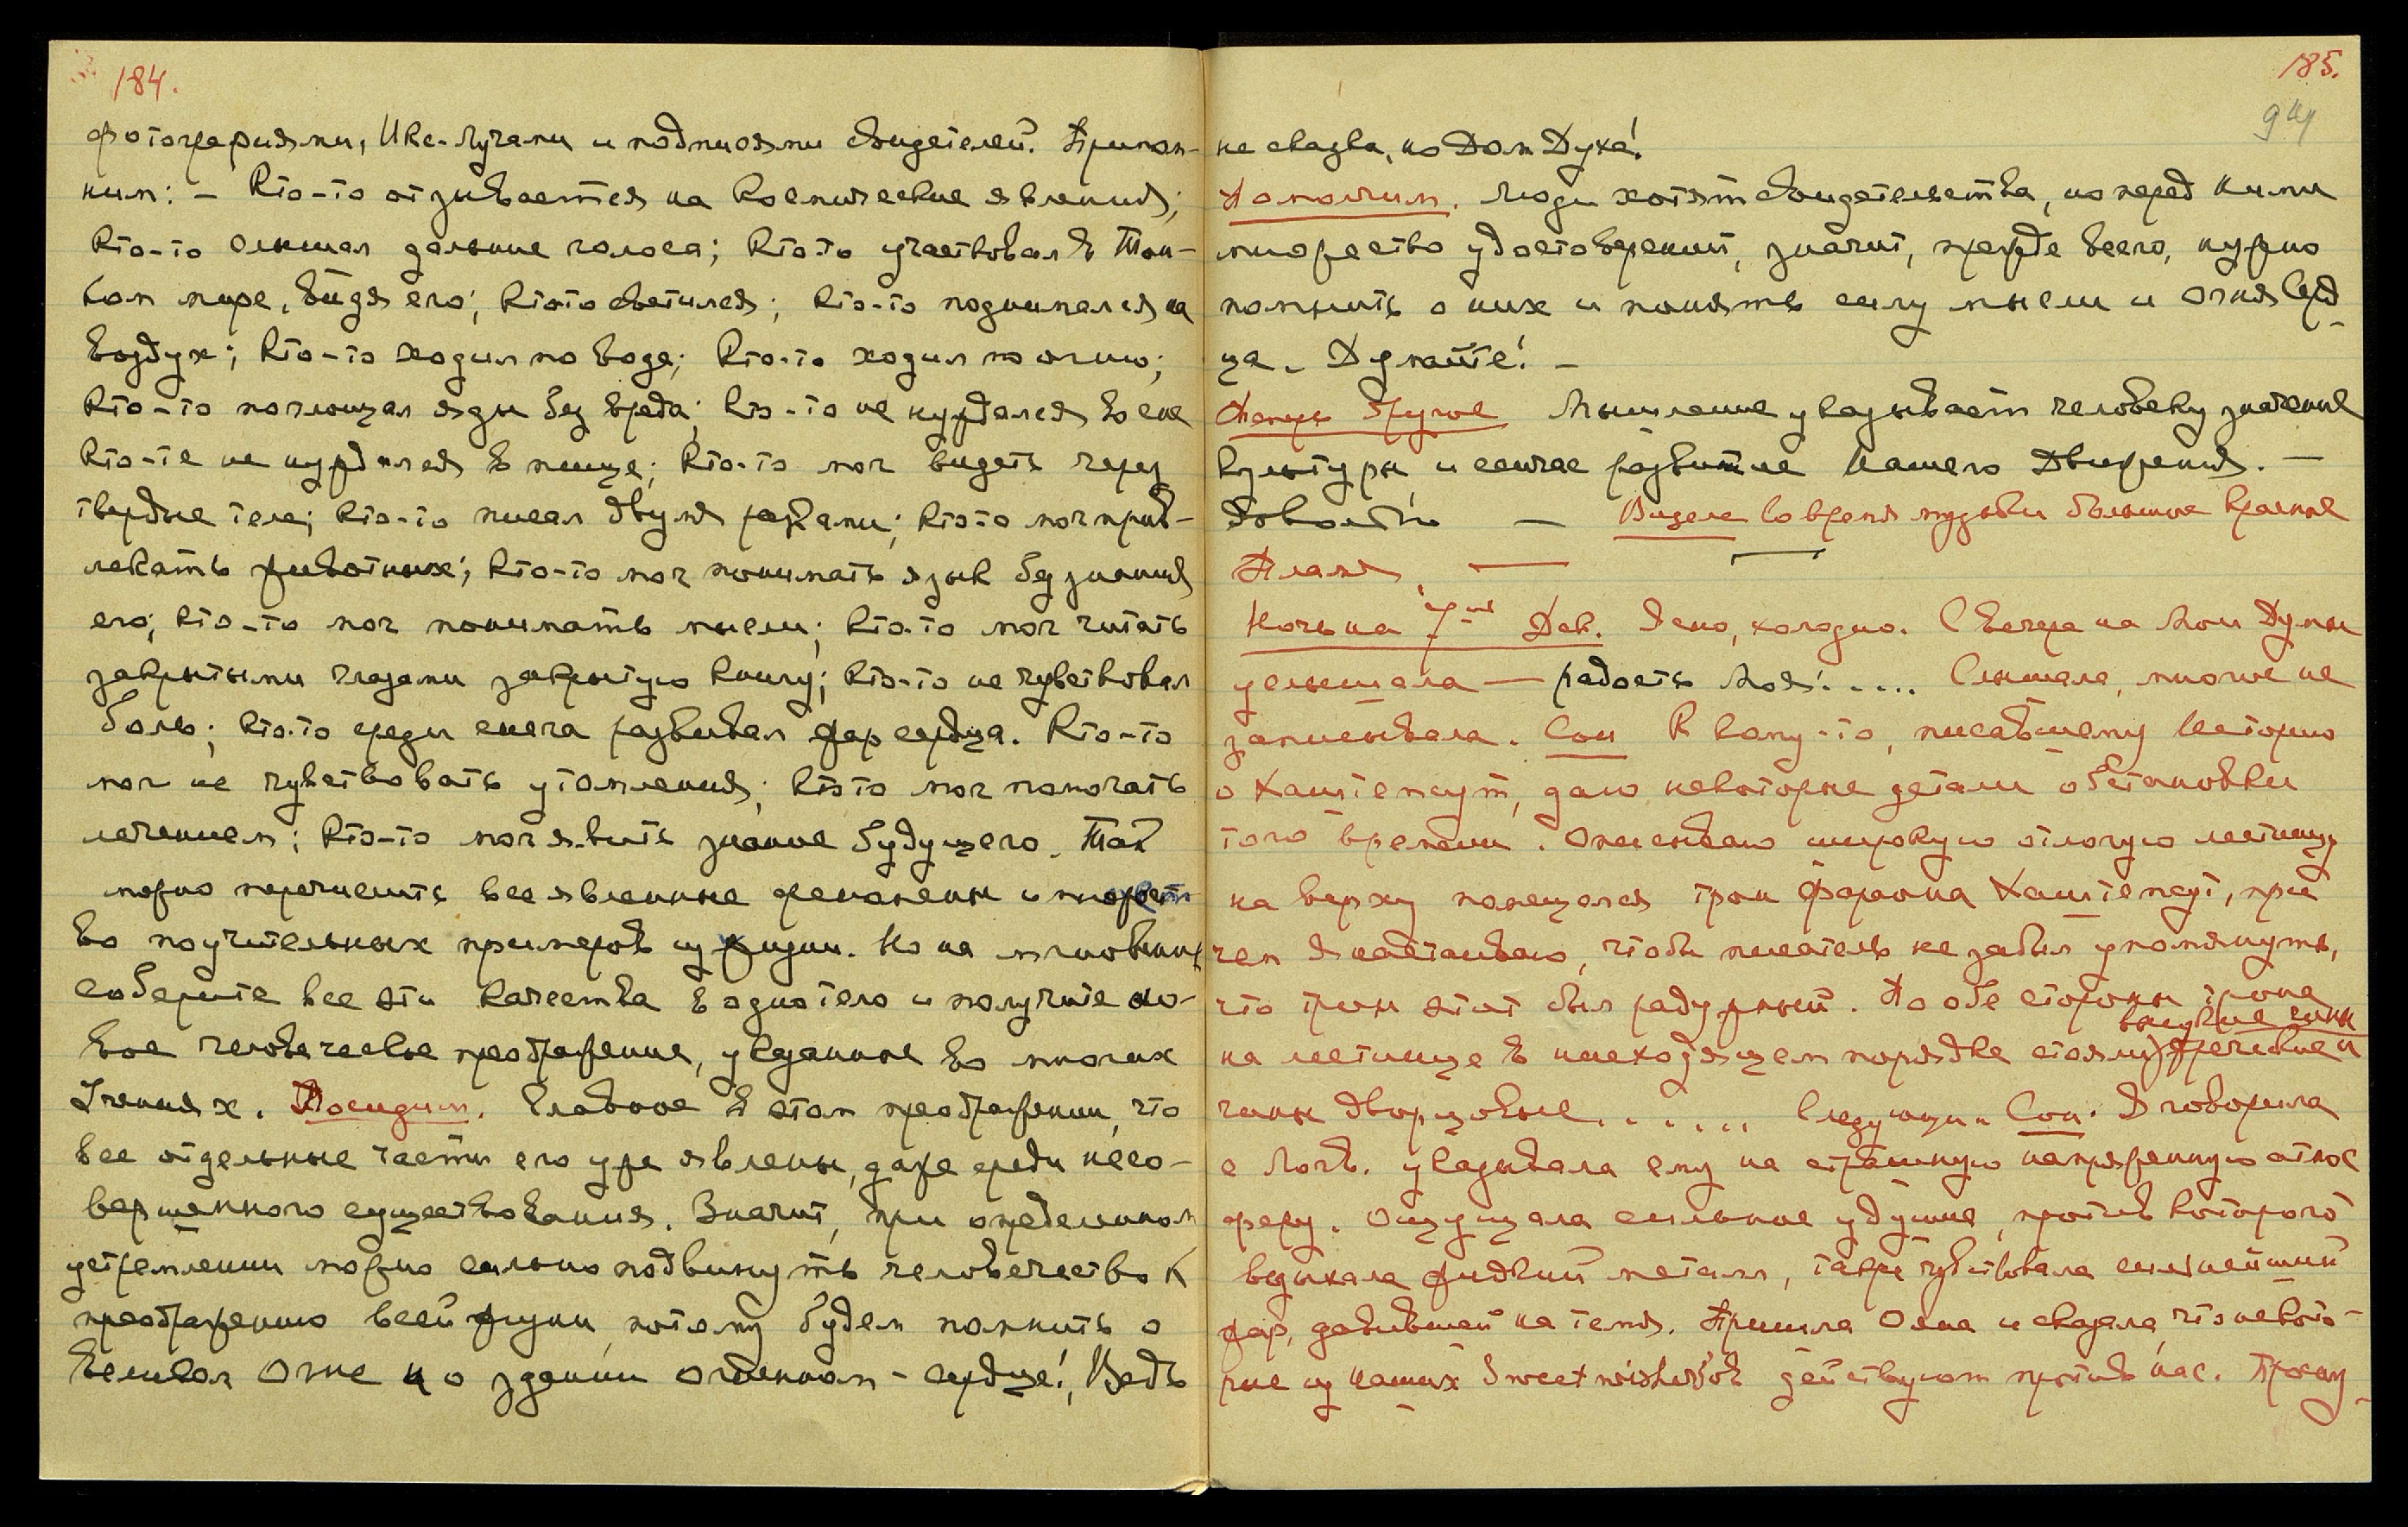 184.
фотографиями, Икс-лучами и подписями свидетелей. Припом-
ним: – Кто-то отзывается на космические явления;
Кто-то слышал дальние голоса; Кто-то участвовал в Тон-
ком мире, видя его; Кто-то светился; Кто-то поднимался на
воздух; Кто-то ходил по воде; Кто-то ходил по огню;
Кто-то поглощал яды без вреда; Кто-то не нуждался во сне
Кто-то не нуждался в пище; Кто-то мог видеть через
твердые тела; Кто-то писал двумя руками; Кто-то мог прив-
лекать животных; Кто-то мог понимать язык без знания
его; Кто-то мог понимать мысли; Кто-то мог читать
закрытыми глазами закрытую книгу; Кто-то не чувствовал
боль; Кто-то среди снега развивал жар сердца. Кто-то
мог не чувствовать утомления; Кто-то мог помогать
лечением; Кто-то мог явить знание будущего. Так
можно перечислить все явленные феномены и множест
во поучительных примеров из жизни. Но на мгновение
соберите все эти качества в одно тело и получите но-
вое человеческое преображение, указанное во многих
Учениях. Посидим. Главное в этом преображении, что
все отдельные части его уже явлены, даже среди несо-
вершенного существования. Значит, при определенном
устремлении можно сильно подвинуть человечество к
преображению всей жизни, потому будем помнить о
Великом Огне и о здании огненном – сердце! Ведь
185.
не сказка, но Дом Духа!
Помолчим. Люди хотят свидетельства, но перед ними
множество удостоверений, значит, прежде всего, нужно
помнить о них и понять силу мысли и Огня Серд-
ца. Думайте! –
Теперь другое Мышление указывает человеку значение
Культуры, и сейчас развитие нашего движения. –
Довольно – Видела во время музыки большие красные
Пламя. –
Ночь на 7-ое Дек. Ясно, холодно. С вечера на Мои Думы
услышала – радость Моя!..... Слышала, многое не
записывала. Сон К кому-то, писавшему историю
о Хатшепсут, даю некоторые детали обстановки
того времени. Описываю широкую отлогую лестницу
на верху помещался трон Фараона Хатшепсут, при
чем Я настаиваю, чтобы писатель не забыл упомянуть,
что трон этот был радужный. По обе стороны трона
на лестнице в нисходящем порядке стояли высшие чины жреческие и
чины дворцовые....... Следующ. Сон. Я говорила
с Логв. указывала ему на страшную напряженную атмос
феру. Ощущала сильное удушие, против которого
вдыхала жидкий металл, также чувствовала сильнейший
жар, давивший на темя. Пришла Ояна и сказала, что некото-
рые из наших Sweet wisher'ов действуют против нас. Просну-